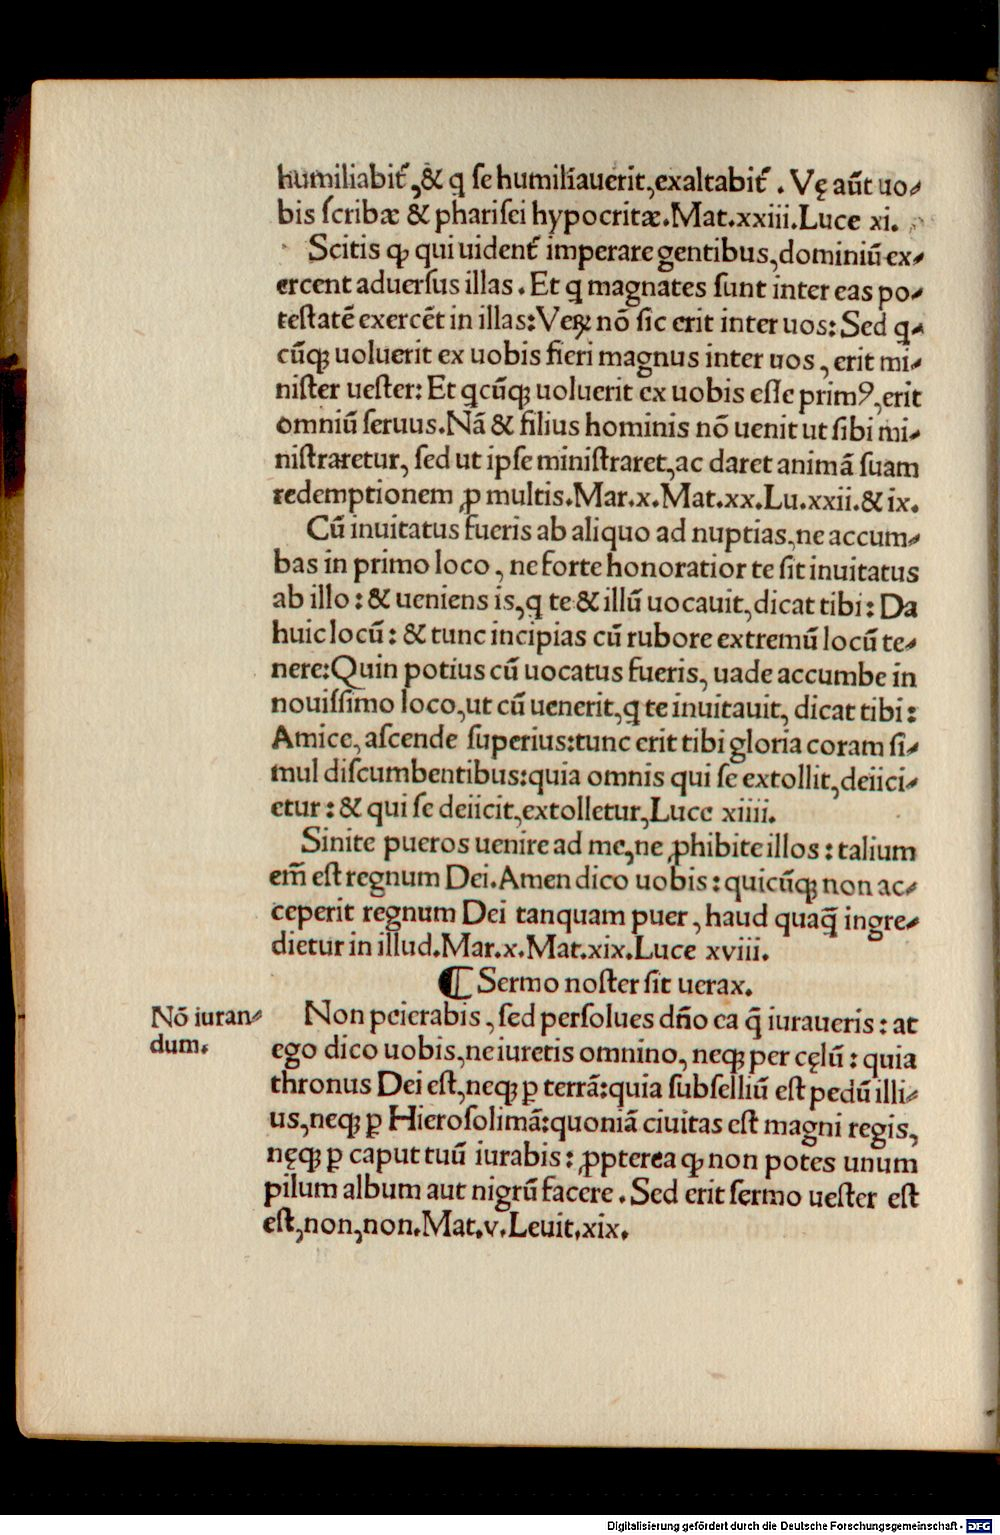 humiliabit᷑, & q̇ se humiliauerit, exaltabit᷑. Vę aūt uo⸗
bis scribæ & pharisei hypocritæ. Mat. xxiii. Luce xi.
Scitis ꝙ qui uident᷑ imperare gentibus, dominiū ex⸗
ercent aduersus illas. Et q magnates sunt inter eas po⸗
testatē exercēt in illas: Veꝝ nō sic erit inter uos: Sed q⸗
cūqꝫ uoluerit ex uobis fieri magnus inter uos, erit mi⸗
nister uester: Et qcūqꝫ uoluerit ex uobis esse primꝰ, erit
omniū seruus. Nā & filius hominis nō uenit ut sibi mi⸗
nistraretur, sed ut ipse ministraret, ac daret animā suam
redemptionem ꝓ multis. Mar. x. Mat. xx. Lu. xxii. & ix.
Cū inuitatus fueris ab aliquo ad nuptias, ne accum⸗
bas in primo loco, ne forte honoratior te sit inuitatus
ab illo: & ueniens is, q te & illū uocauit, dicat tibi: Da
huic locū: & tunc incipias cū rubore extremū locū te⸗
nere: Quin potius cū uocatus fueris, uade accumbe in
nouissimo loco, ut cū uenerit, q te inuitauit, dicat tibi:
Amice, ascende superius: tunc erit tibi gloria coram si⸗
mul discumbentibus: quia omnis qui se extollit, deiici⸗
etur: & qui se deiicit, extolletur, Luce xiiii.
Sinite pueros uenire ad me, ne ꝓhibite illos: talium
em̄ est regnum Dei. Amen dico uobis: quicūqꝫ non ac⸗
ceperit regnum Dei tanquam puer, haud quaq̄ ingre⸗
dietur in illud. Mar. x. Mat. xix. Luce xviii.
⁋ Sermo noster sit uerax.
Nō iuran⸗
dum.
Non peierabis, sed persolues dño ea q̄ iuraueris: at
ego dico uobis, ne iuretis omnino, neqꝫ per cęlū: quia
thronus Dei est, neqꝫ ꝑ terrā: quia subselliū est pedū illi⸗
us, neqꝫ ꝑ Hierosolimā: quoniā ciuitas est magni regis,
nęqꝫ ꝑ caput tuū iurabis: ꝓpterea ꝙ non potes unum
pilum album aut nigrū facere. Sed erit sermo uester est
est, non, non. Mat. v. Leuit. xix.
Digitalisierung gefördert durch die Deutsche Forschungsgemeinschaft - DFG